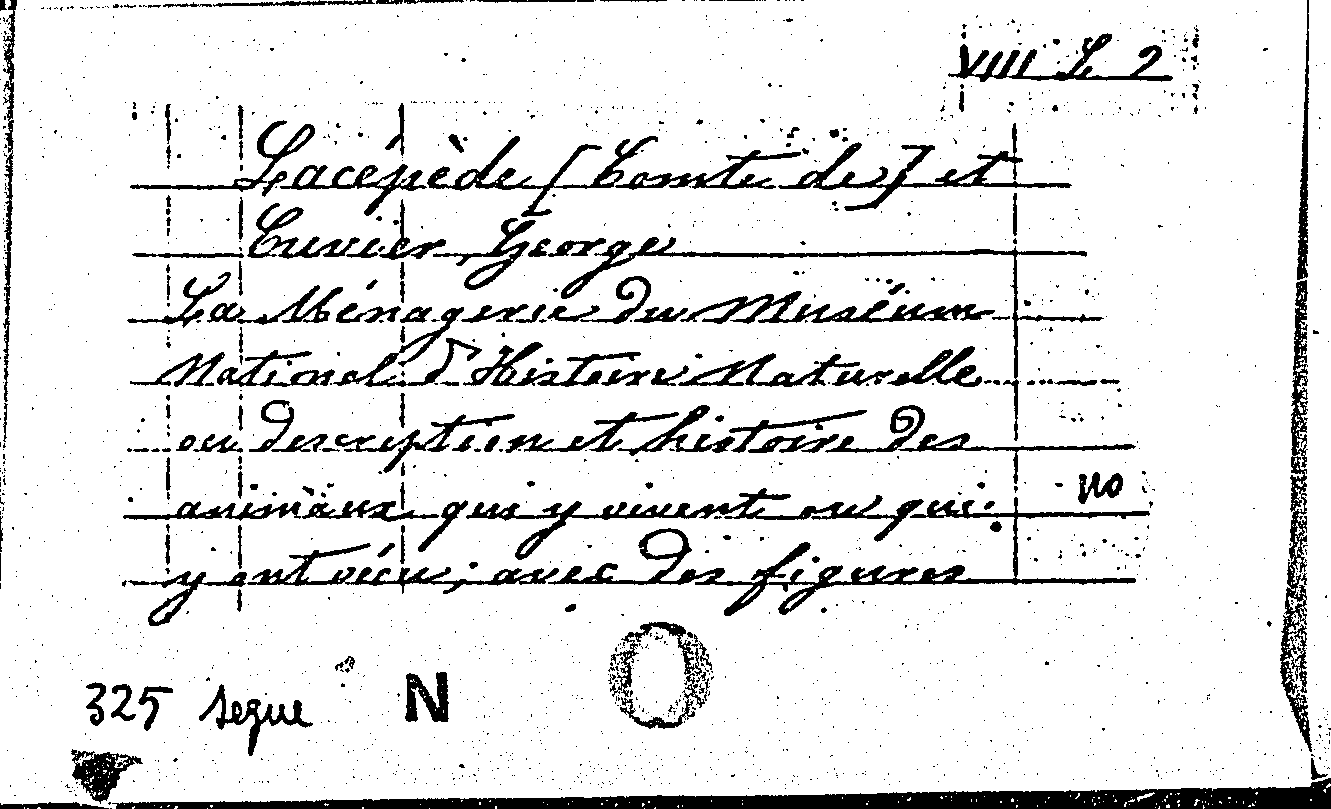 VIII L 2
Lacépède [Comte de] et
Cuvier, George
La Ménagerie du Muséum
National d'Histoire Naturelle
ou description et histoire des
animaux qui y vivent ou qui
no
y ont vécu; avec des figures
325 segue N